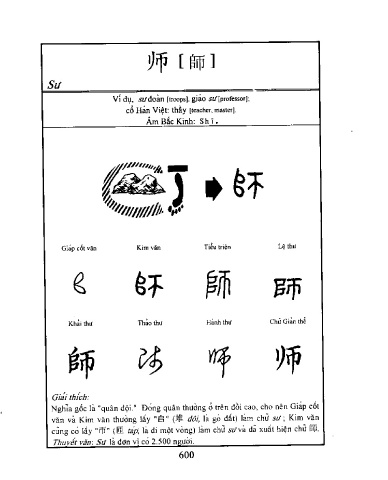 师 [ 師 ]
Sư
Ví dụ, sư đoàn [troops], giáo sư [professor];
cổ Hán Việt: thầy [teacher, master].
Âm Bắc Kinh: Shī.
Giáp cốt văn Kim văn Tiểu triện Lệ thư
師 師 師
Khải thư Thảo thư Hành thư Chữ Giản thể
師 师 师 师
Giải thích:
Nghĩa gốc là "quân đội." Đóng quân thường ở trên đồi cao, cho nên Giáp cốt
văn và Kim văn thường lấy "𠂤" (堆 đôi, là gò đất) làm chữ sư; Kim văn
cũng có lấy "帀" (匝 tạp, là đi một vòng) làm chữ sư và đã xuất hiện chữ 師.
Thuyết văn: Sư là đơn vị có 2.500 người.
600